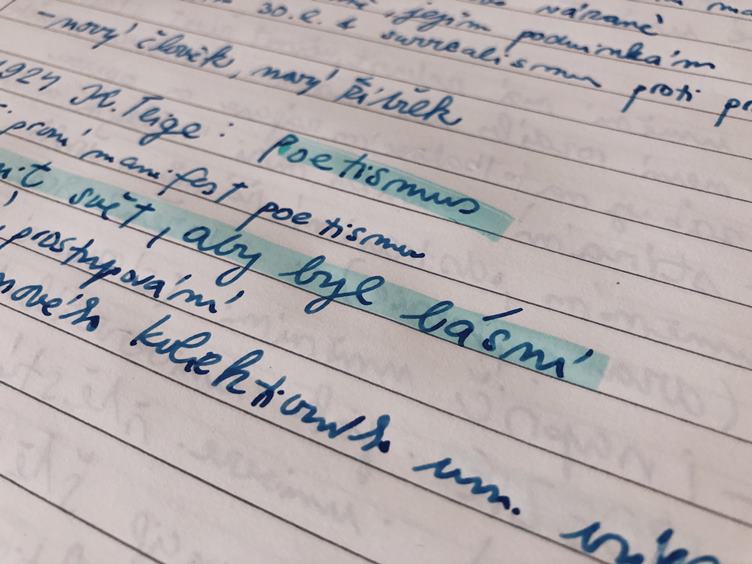 vázané
jejím podmínkám
30. l. k surrealismu proti
- nový člověk, nový příběk
1924 K. Teige: Poetismus
první manifest poetismu
svět, aby byl básní
prostupování
nového kolektivního um.